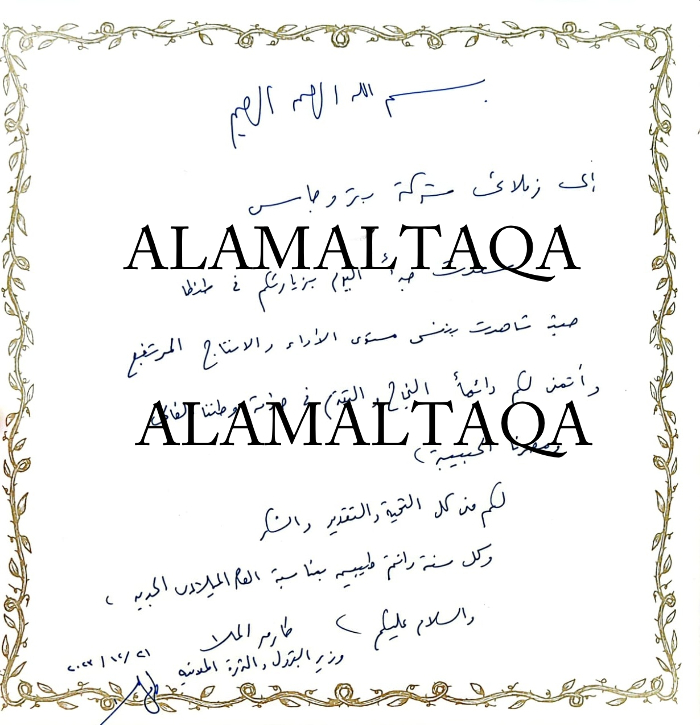 بسم الله الرحمن الرحيم
إلى زملائى شركة بتروجاس
ALAMALTAQA
سعدت جداً اليوم بزيارتكم فى طنطا
حيث شاهدت بنفسى مستوى الأداء والانتاج المرتفع
وأتمنى لكم دائماً النجاح والتقدم فى خدمة وطننا الغالى
ALAMALTAQA
ومصرنا الحبيبة
لكم منى كل التحية والتقدير والشكر
وكل سنة وانتم طيبين بمناسبة العام الميلادى الجديد ،
والسلام عليكم ،
طارق الملا
وزير البترول والثروة المعدنية
٢٠٢٢/١٢/٢١